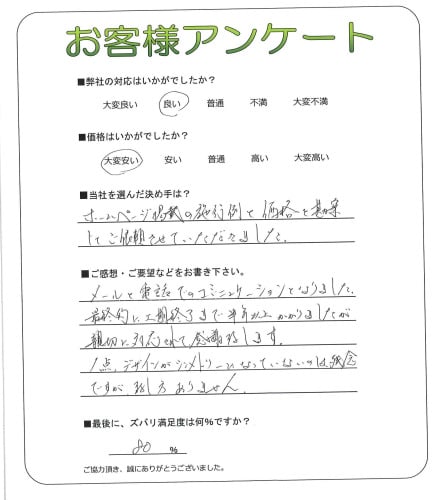 お客様アンケート
■弊社の対応はいかがでしたか?
大変良い 良い 普通 不満 大変不満
■価格はいかがでしたか?
大変安い 安い 普通 高い 大変高い
■当社を選んだ決め手は?
ホームページ掲載の施行例と価格を勘案
してご依頼させていただきました。
■ご感想・ご要望などをお書き下さい。
メールと電話でのコミニュケーションとなりました。
最終的に工期終了まで半年以上かかりましたが
親切に対応されて感謝致します。
1点、デザインがシンメトリーになっていないのは残念
ですが、致し方ありません。
■最後に、ズバリ満足度は何%ですか?
80 %
ご協力頂き、誠にありがとうございました。